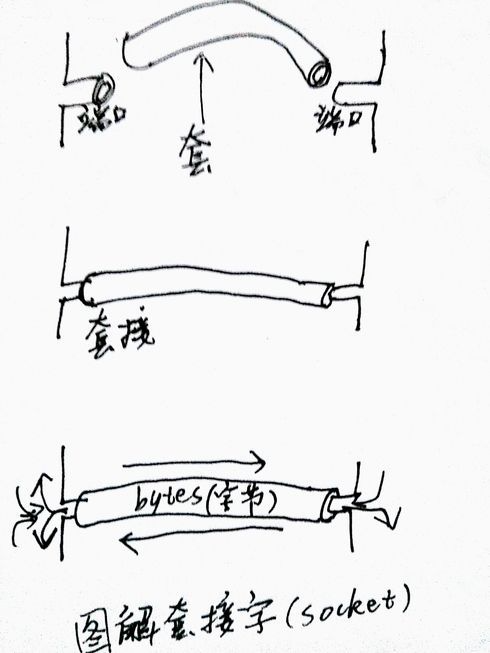 端口
端口
套
套接
bytes(字节)
图解套接字(socket)